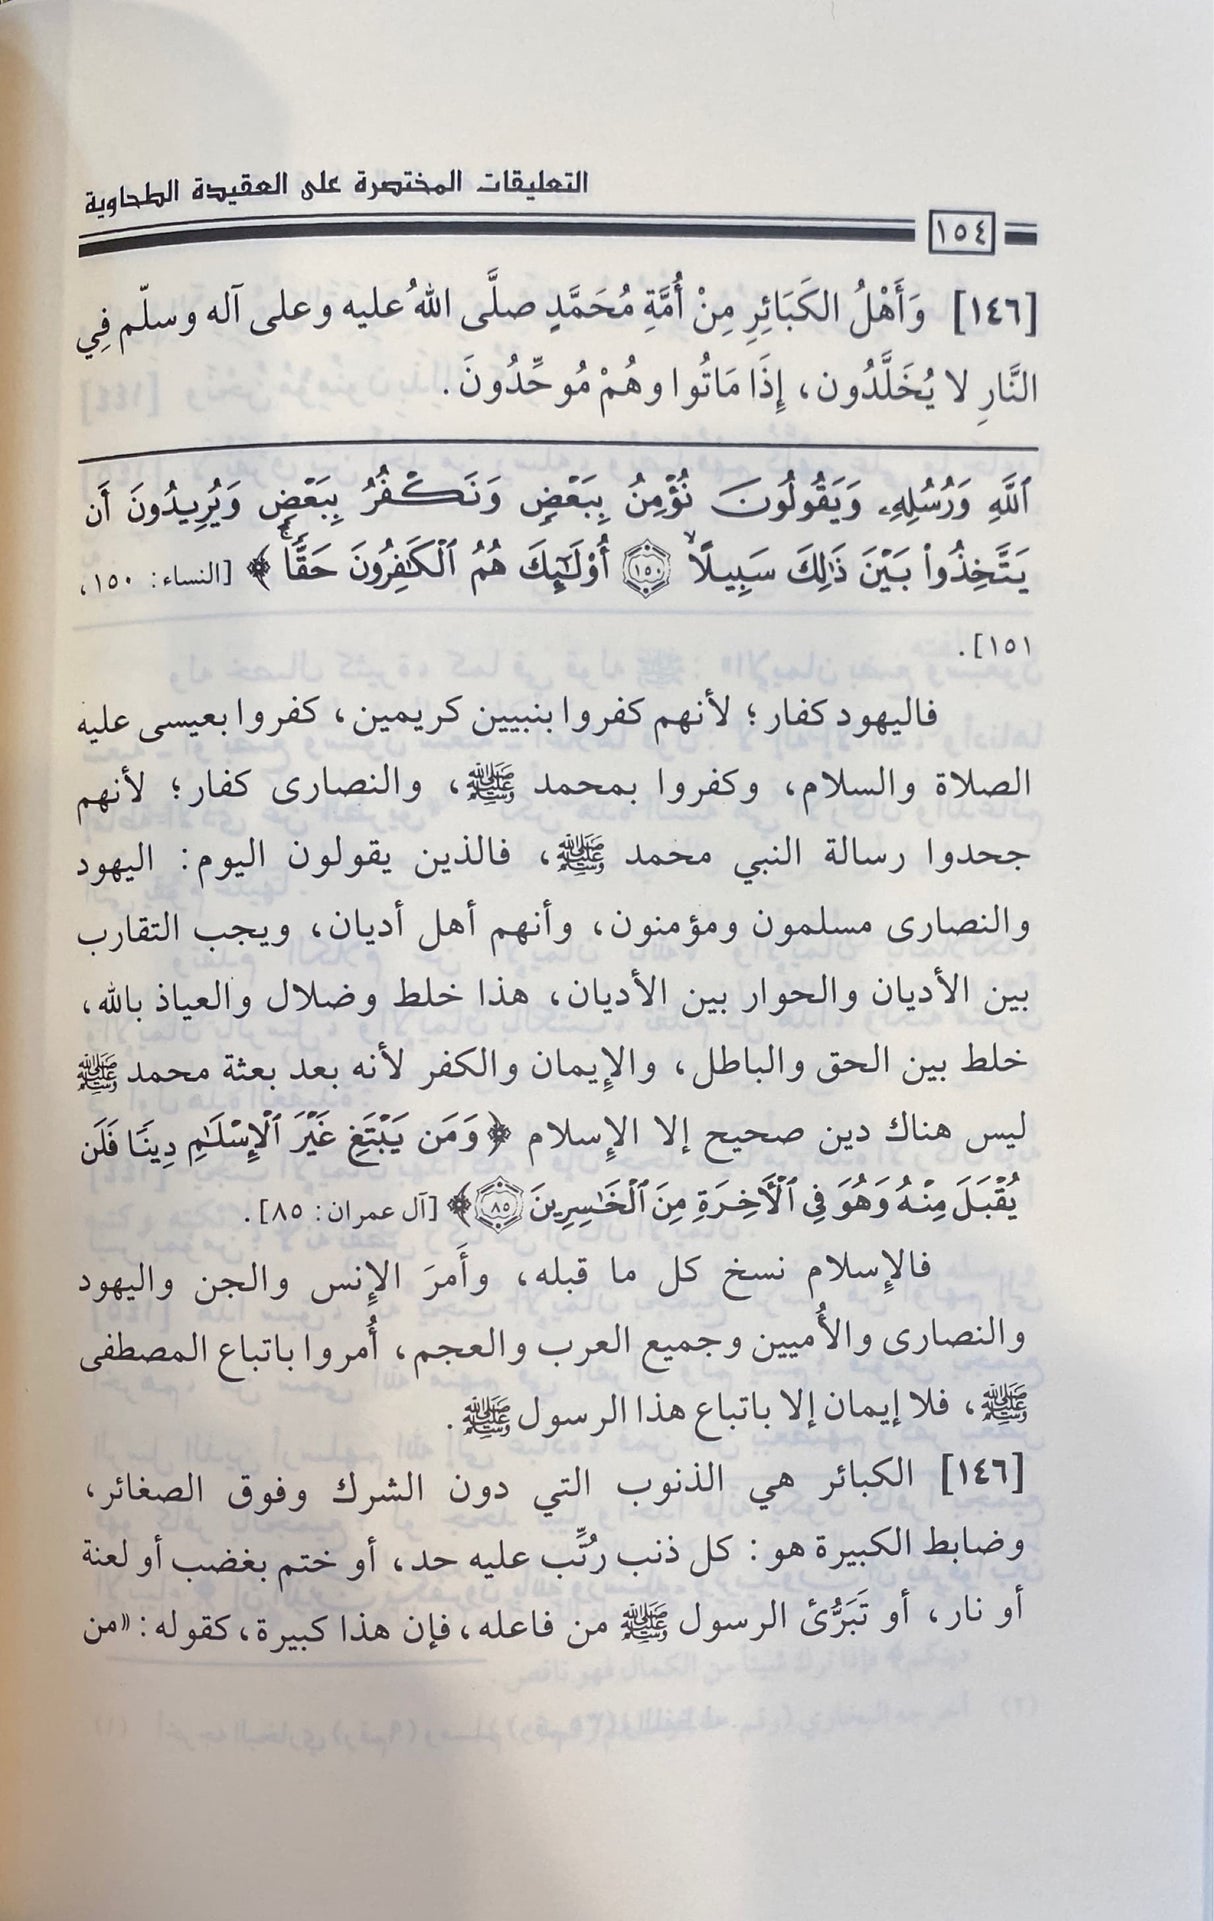 التعليقات المختصرة على العقيدة الطحاوية
١٥٤
[١٤٦] وَأَهْلُ الكَبَائِرِ مِنْ أُمَّةِ مُحَمَّدٍ صلَّى اللهُ عليه وعلى آله وسلّم فِي
النَّارِ لا يُخَلَّدُون، إِذَا مَاتُوا وهُمْ مُوحِّدُونَ.
ٱللَّهِ وَرُسُلِهِۦ وَيَقُولُونَ نُؤْمِنُ بِبَعْضٍ وَنَكْفُرُ بِبَعْضٍ وَيُرِيدُونَ أَن
يَتَّخِذُوا۟ بَيْنَ ذَٰلِكَ سَبِيلًا ۝١٥٠ أُو۟لَـٰٓئِكَ هُمُ ٱلْكَـٰفِرُونَ حَقًّا ۚ ﴾ [النساء: ١٥٠،
١٥١].
فاليهود كفار؛ لأنهم كفروا بنبيين كريمين، كفروا بعيسى عليه
الصلاة والسلام، وكفروا بمحمد ﷺ، والنصارى كفار؛ لأنهم
جحدوا رسالة النبي محمد ﷺ، فالذين يقولون اليوم: اليهود
والنصارى مسلمون ومؤمنون، وأنهم أهل أديان، ويجب التقارب
بين الأديان والحوار بين الأديان، هذا خلط وضلال والعياذ بالله،
خلط بين الحق والباطل، والإيمان والكفر لأنه بعد بعثة محمد ﷺ
ليس هناك دين صحيح إلا الإسلام ﴿ وَمَن يَبْتَغِ غَيْرَ ٱلْإِسْلَـٰمِ دِينًا فَلَن
يُقْبَلَ مِنْهُ وَهُوَ فِى ٱلْـَٔاخِرَةِ مِنَ ٱلْخَـٰسِرِينَ ۝٨٥﴾ [آل عمران: ٨٥].
فالإسلام نسخ كل ما قبله، وأَمرَ الإنس والجن واليهود
والنصارى والأُميين وجميع العرب والعجم، أُمروا باتباع المصطفى
ﷺ، فلا إيمان إلا باتباع هذا الرسول ﷺ.
[١٤٦] الكبائر هي الذنوب التي دون الشرك وفوق الصغائر،
وضابط الكبيرة هو: كل ذنب رُتِّب عليه حد، أو ختم بغضب أو لعنة
أو نار، أو تَبَرُّئ الرسول ﷺ من فاعله، فإن هذا كبيرة، كقوله: «من